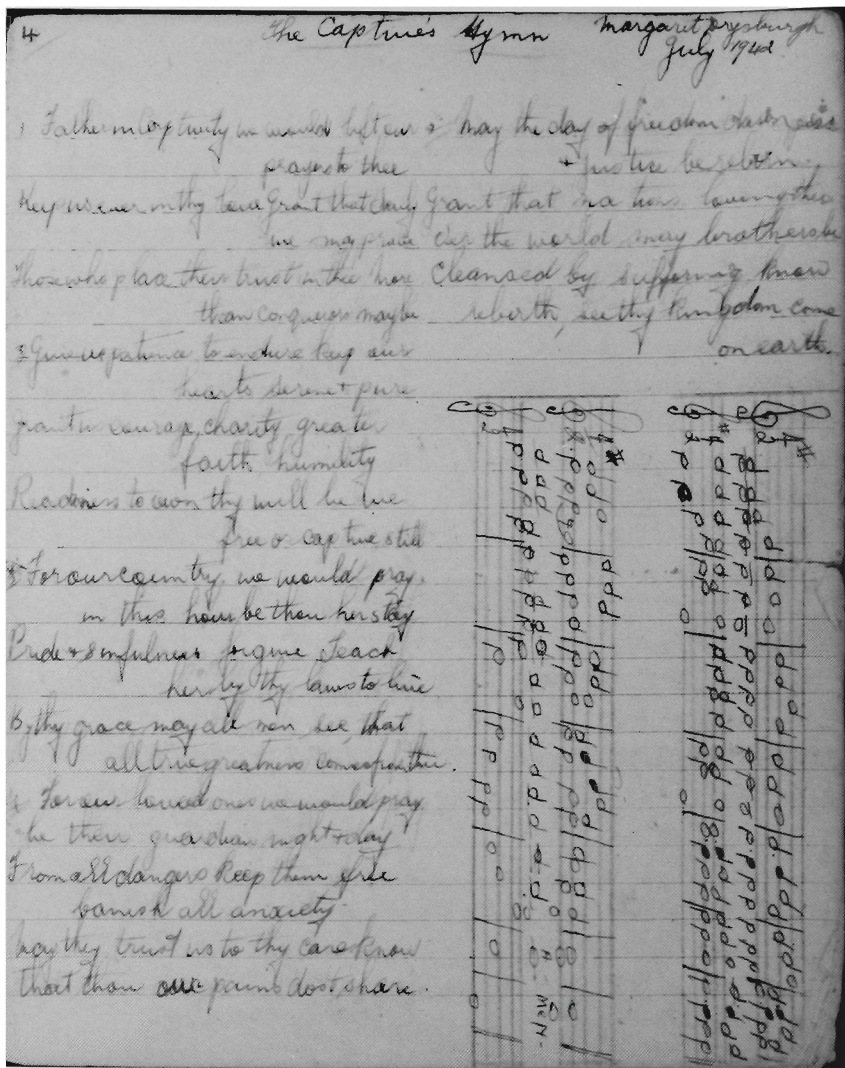 4
The Captive's Hymn Margaret Drysburgh
July 1942
1 Father in Captivity we would lift our
prayers to thee
Keep us ever in thy love Grant that daily
we may prove
Those who place their trust in thee more
than conquerors may be
2 Give us patience to endure keep our
hearts serene + pure
Grant us courage, charity greater
faith humility
Readiness to own thy will be we
free or captive still
3 For our country we would pray.
in this hour be thou her stay
Pride + sinfulness forgive Teach
her by thy laws to live
By thy grace may all men see, that
all true greatness comes from thee.
4 For our loved ones we would pray
be their guardian night + day
From all dangers keep them free
banish all anxiety
May they trust us to thy care know
that thou our pains dost share.
5 May the day of freedom dawn peace
+ justice be reborn.
Grant that nations loving thee
o'er the world may brothers be
Cleansed by suffering know
rebirth, see thy kingdom come
on earth.
A - MEN -